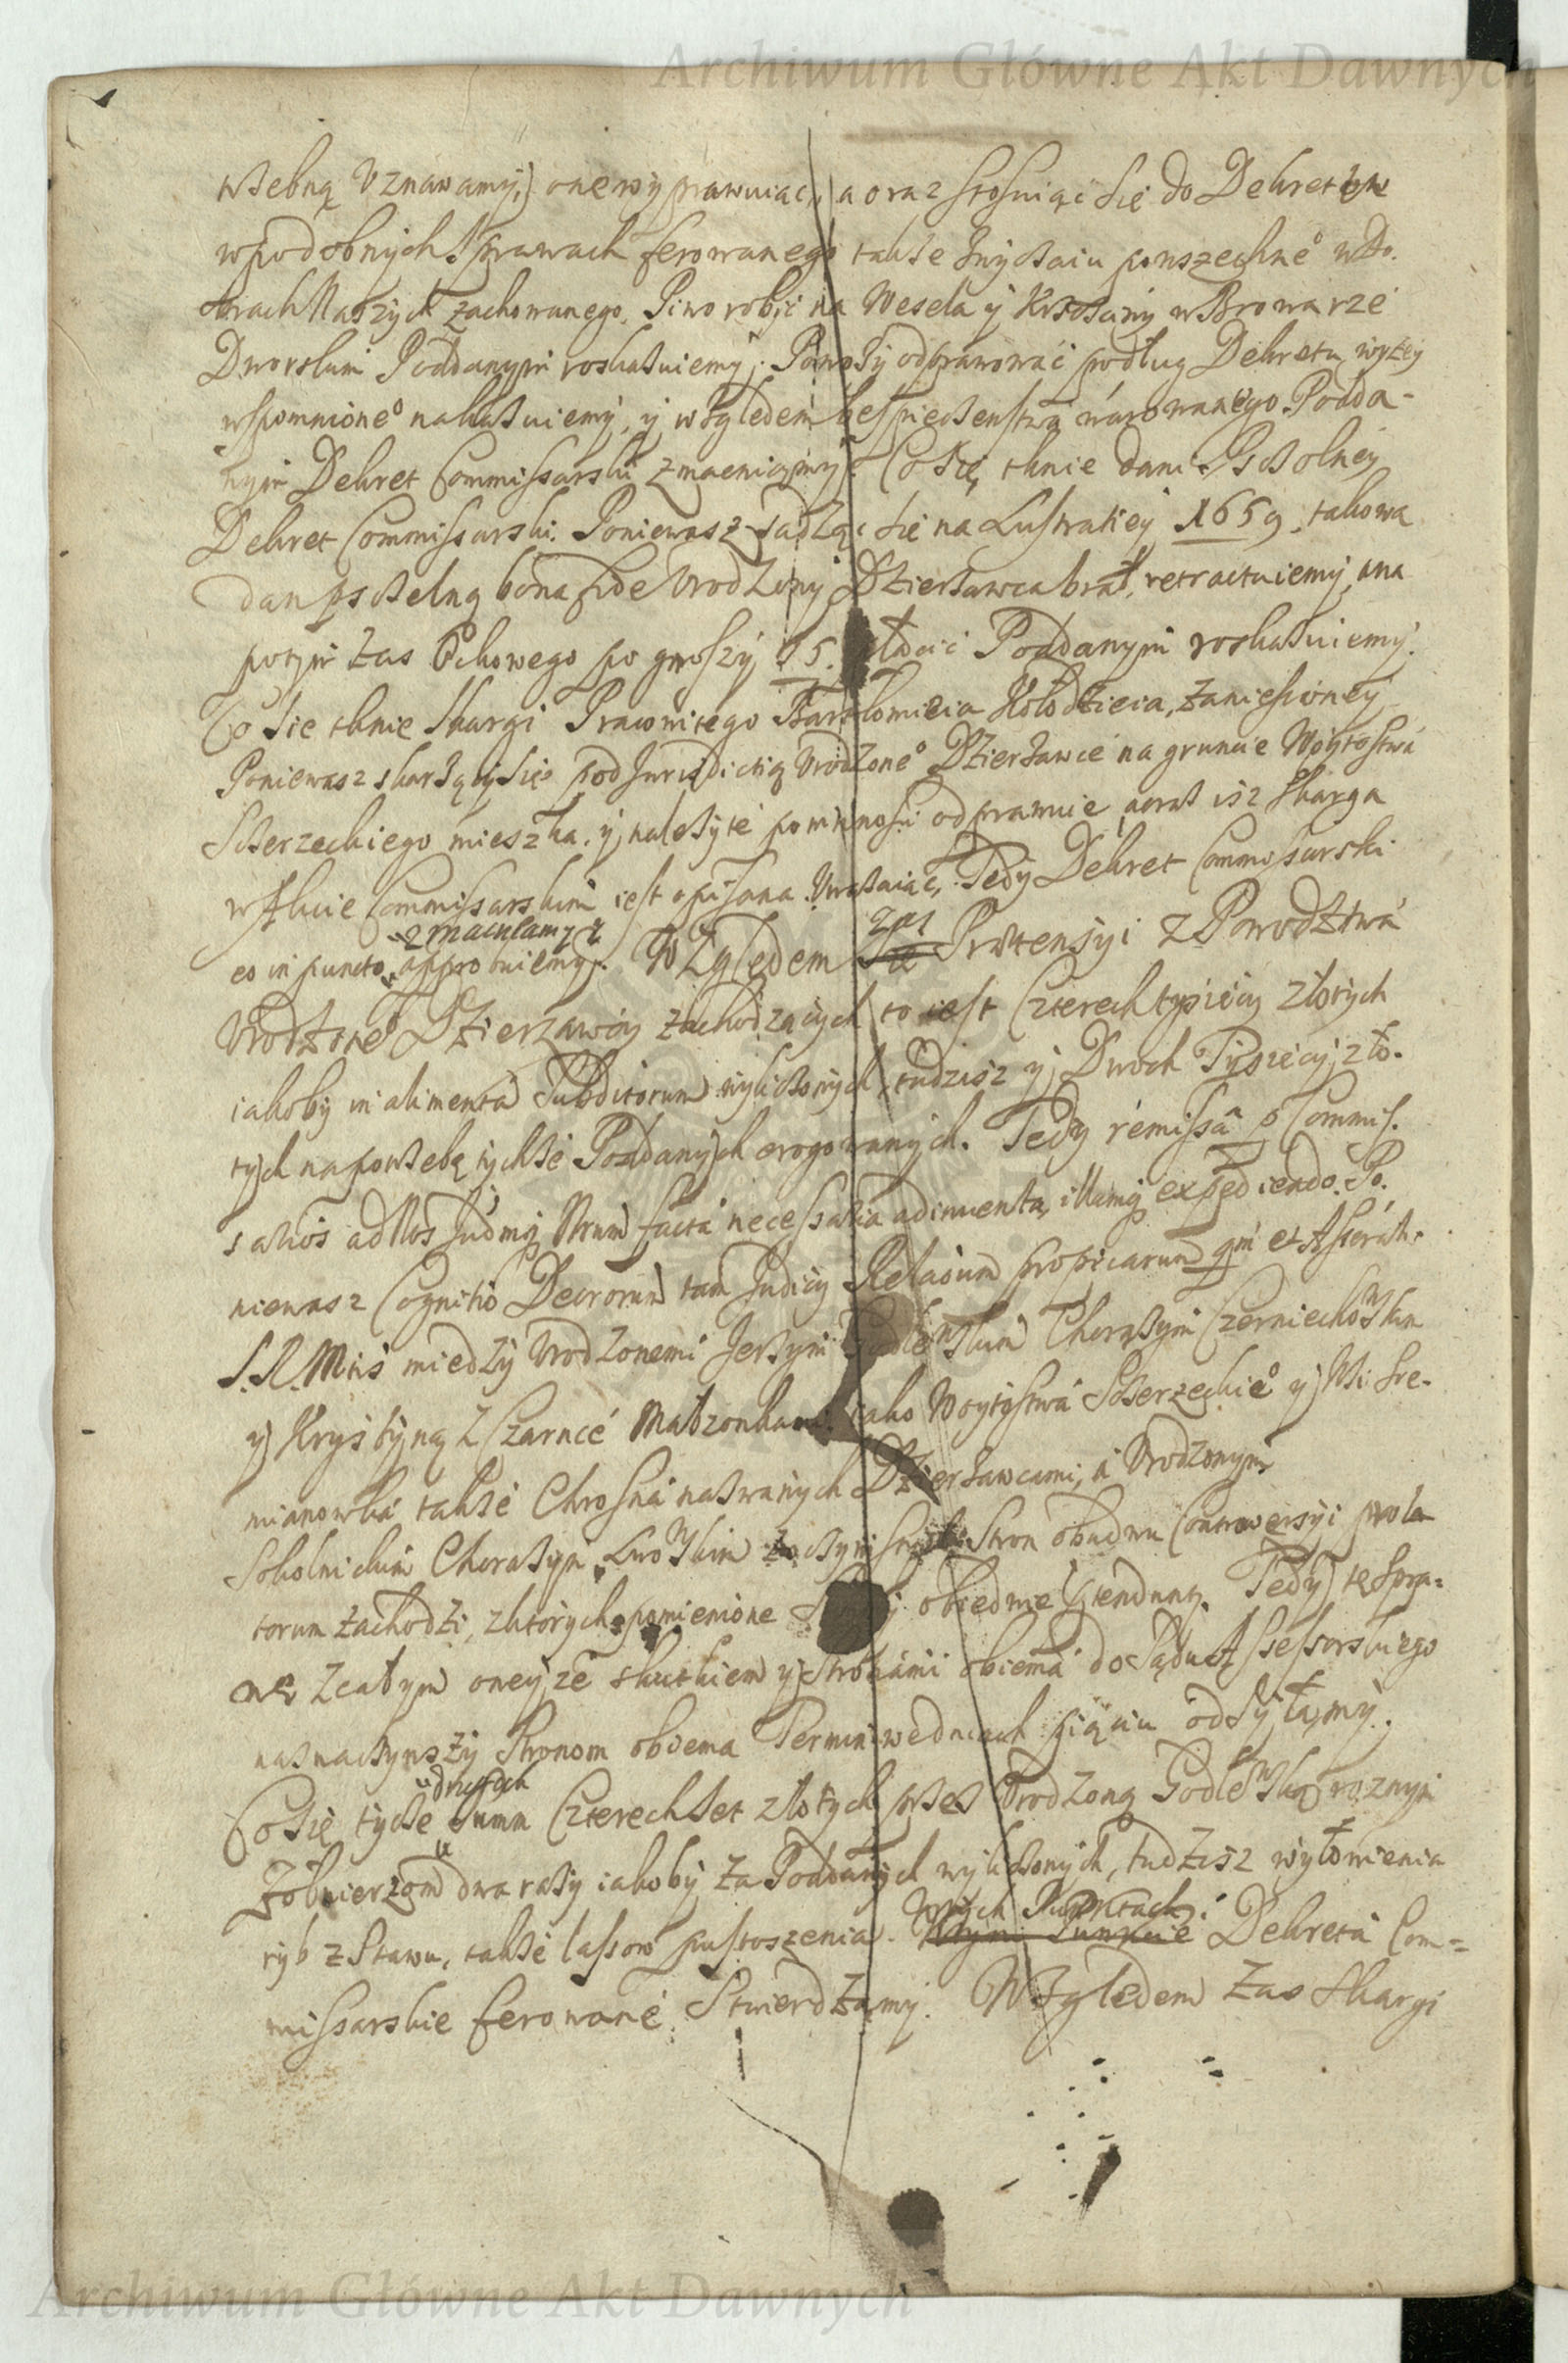 Archiwum Główne Akt Dawnych
trzebną Uznawamy, onewyprawuiąc, a oraz stosuiąc się do Dekretów
wpodobnych Sprawach ferowanego także zwyczaiu powszechne⁰ wdo-
brach Naszych zachowanego, Piwo robić na Wesela y Krzciny w Browarze
Dworskim Poddanym roskazuiemy. Powozy odprawować podług Dekretu wyżey
wspomnione⁰ nakazuiemy, y względem bespieczenstwa warowanego Podda-
nym Dekret Commissarski zmacniamy. Co się tknie dani Pszczolney
Dekret Commissarski. Poniewasz sadząc się na Lustratiey 1659. takowa
dan pszczelną bona fide Urodzony Dzierżawca brał, retractuiemy, ana
potym zas Ockowego po groszy 15. płacić Poddanym roskazuiemy.
Co sie tknie Skargi Pracowitego Bartłomieia Kołodzieia, zaniesioney
Poniewasz skarżący się pod Jurisdictią Urodzone⁰ Dzierżawce na gruncie Woytostwa
Sczerzeckiego mieszka, y należyte powinnosci odprawuie, aoraz isz Skarga
w Akcie Commissarskim iest opisana. Uważaiąc, Tedy Dekret Commissarski
eo in puncto zmacnlamy y approbuiemy. Względem Prætensyi z Powodztwa
Urodzone⁰ Dzierzawcy zachodzących to iest Czterech tysięcy złotych
iakoby in alimenta Subditorum wyliczonych, tudzisz y Dwoch Tysięcy zło-
tych napotrzebę tychże Poddanych erogowanych. Tedy remissa p Commis-
sarios ad Nos Judmq Nrum facta necessaria adinventa, illamq expediendo. Po-
niewasz Cognitio Decrorum tam Judicy Relaōnum propriarum qm et Assesrāli
S. R. Mtis miedzy Urodzonemi Jerzym Godlewskim Chorążym Czerniechowskim
y Krystyną z Czarnce Małzonkami, iako Woytostwa Sczerzeckie⁰ y Wsi Sre-
mianowka także Chrosna nazwanych Dzierżawcami, a Urodzonym
Sokolnickim Chorążym Lwowskim Stron obudwu Controwersyi prola
torum zachodzi, zktorych pomienione obiedwie Tedy tę Spra-
wę zcałym oneyże skutkiem y Stronami obiema do Sądu Assessorskiego
naznaczywszy Stronom obiema Termin wedniach piąciu odsyłamy.
Co się tycze drugich Summ Czterechset złotych przez Urodzoną Godlewską roznym
Żołnierzom dwa razy iakoby za Poddanych wyliczonych, tudzisz wyłowienia
ryb z Stawu, także lassow pustoszenia. W tych Punktach Dekreta Com=
missarskie ferowane Stwierdzamy. Względem zas Skargi
Archiwum Główne Akt Dawnych